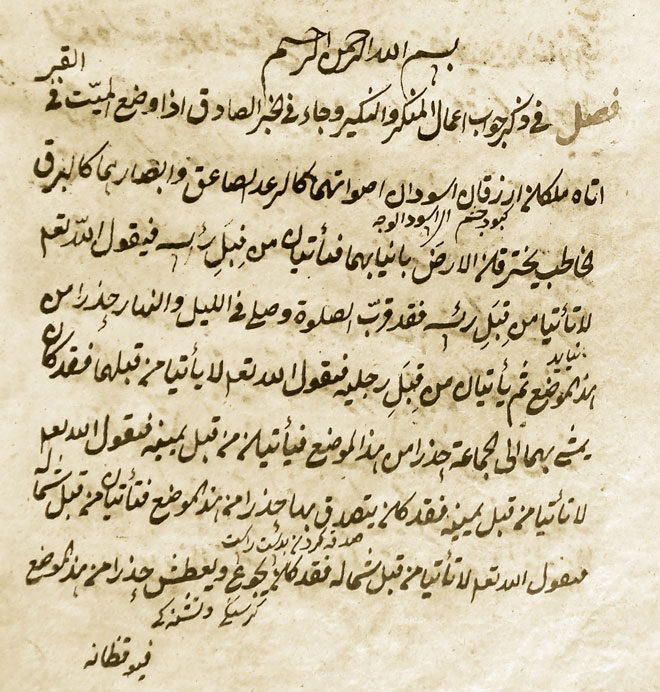 بسم الله الرحمن الرحيم
فصل في ذكر جواب اعمال المنكر والنكير وجاء في الخبر الصادق اذا وضع الميّت في القبر
اتاه ملكان ازرقان اسودان اصواتهما كالرعد الصاعق وابصارهما كالبرق
كبود چشم اسود الوجه
الخاطب يخترقان الارضَ بانيابهما فتأتيان من قِبَلِ رئسه فيقول اللّه تعم
لا تأتيا من قِبَلِ رئسه فقد قربّ الصلوة وصلى في الليل والنهار حذرا من
نيايد
هذ الموضع ثم يأتيان من قِبَلِ رجليه فيقول الله تعم لا يأتيا من قبلهما فقد كان
يمشي بهما الى الجماعة حذرا من هذ الموضع فيأتيان من قبل يمينه فيقول الله تعم
لا تأتيا من قبل يمينه فقد كان يتصدق بها حذرا من هذ الموضع فتأتيان من قبل شماله
صدقه كردن بدست راست
فيقول الله تعم لا تأتيا من قبل شماله فقد كان يجوع ويعطش حذرا من هذ الموضع
كرسنكي وتشنه كي
فيوقظانه